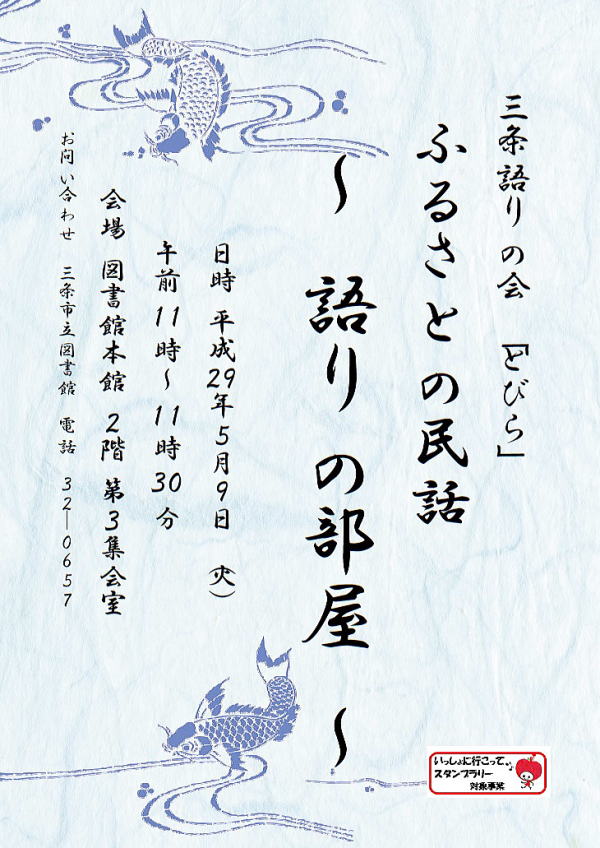 三条語りの会 『とびら』
ふるさとの民話
～ 語りの部屋 ～
日時 平成29年5月9日 (火)
午前11時～11時30分
会場 図書館本館 2階 第3集会室
お問い合わせ 三条市立図書館 電話 32―0657
いっしょに行こって♪
スタンプラリー
対象事業